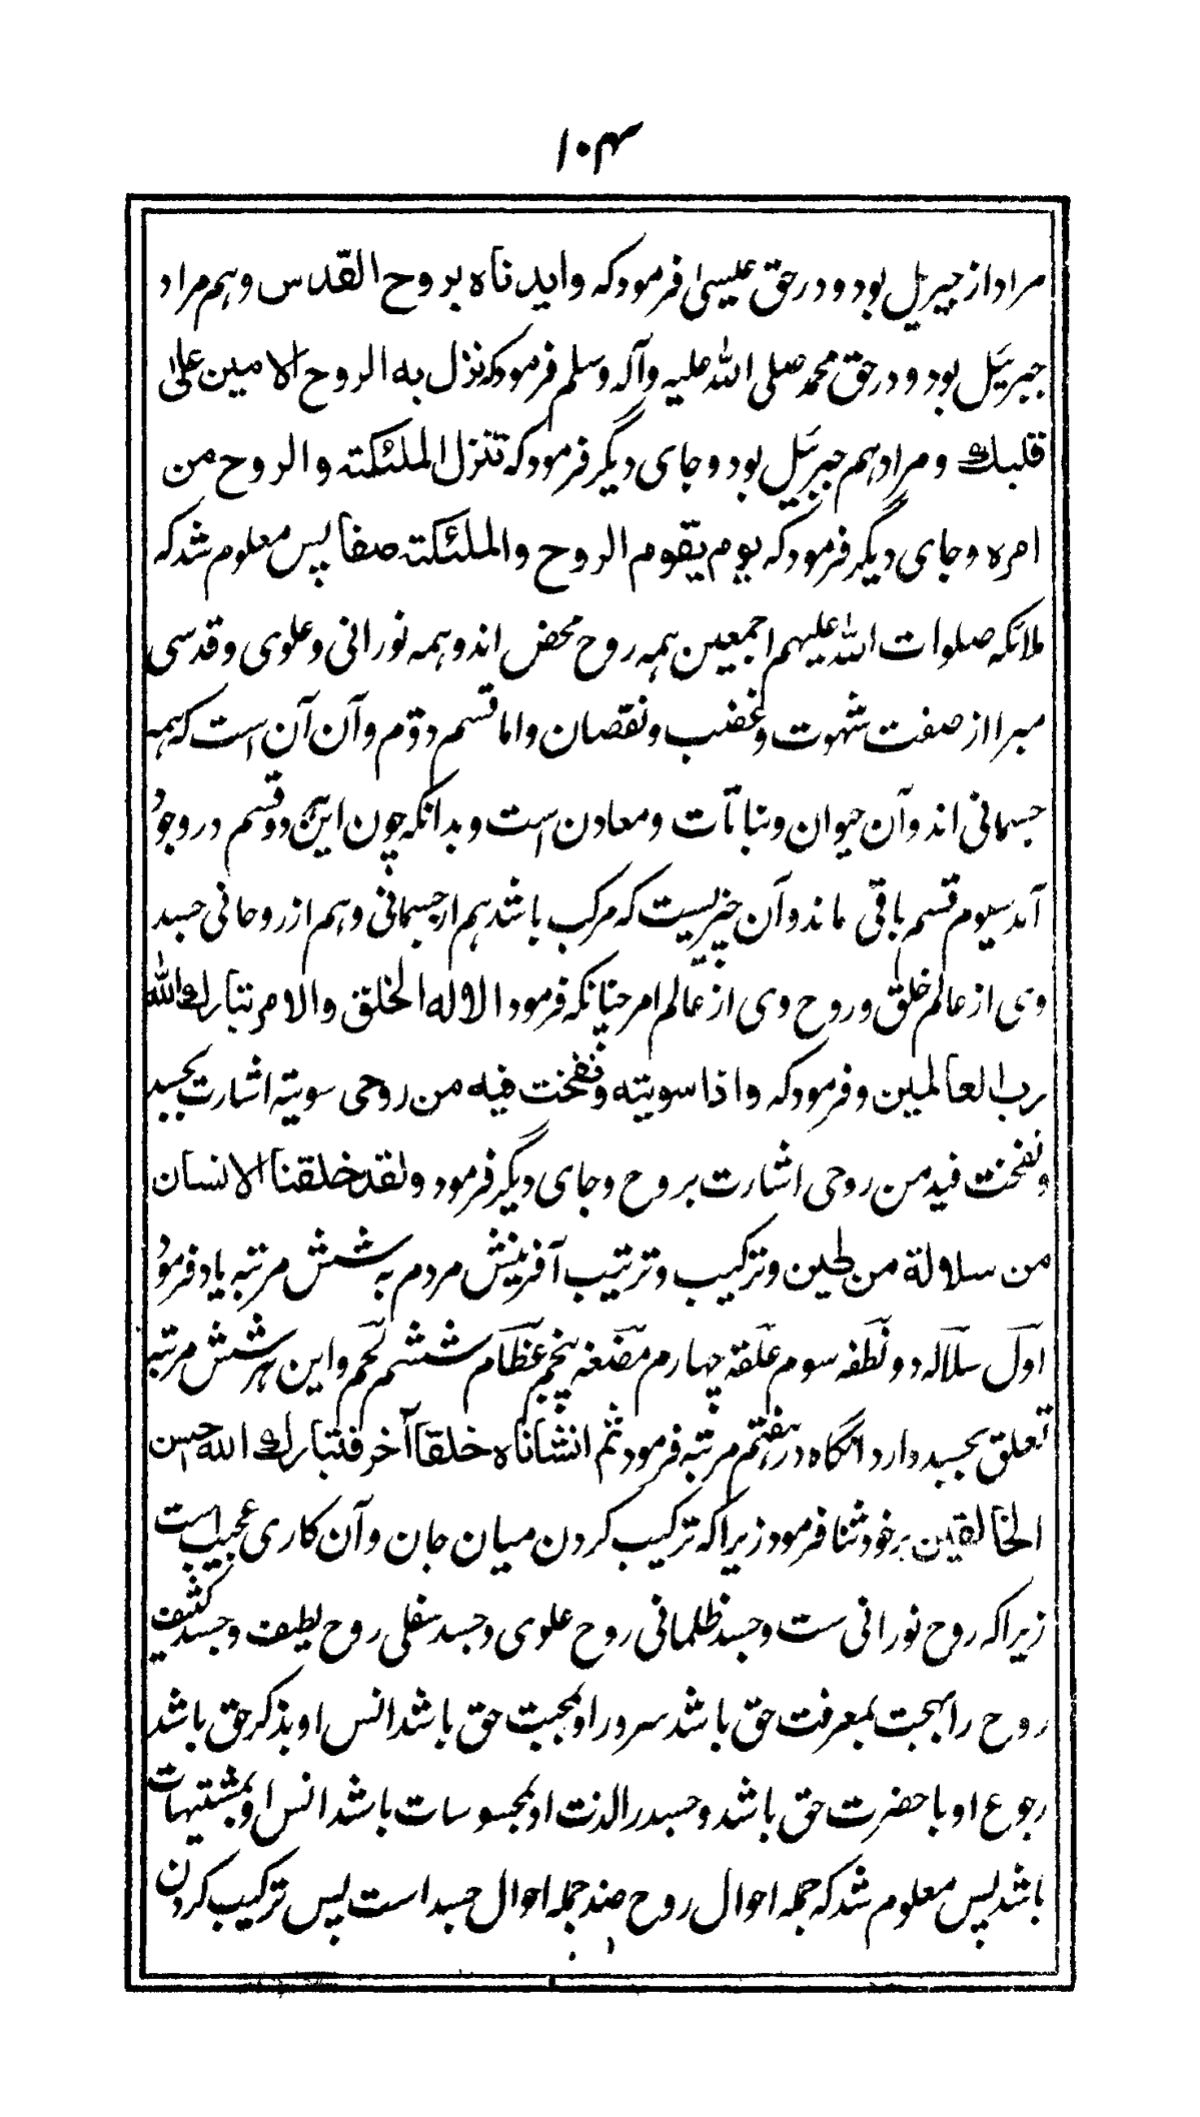 ۱۰۴
مراد از جبریل بود و در حق عیسیٰ فرمود که وایدناه بروح القدس و هم مراد
جبریئل بود و در حق محمد صلی الله علیه وآله وسلم فرمود که نزل به الروح الامین علیٰ
قلبك و مراد هم جبریئل بود و جای دیگر فرمود که تنزل الملئکته والروح من
امره و جای دیگر فرمود که یوم یقوم الروح والملئکته صفا پس معلوم شد که
ملائکه صلوات الله علیهم اجمعین همه روح محض اند و همه نورانی و علوی و قدسی
مبرا از صفت شهوت و غضب و نقصان و اما قسم دوّم و آن آن است که همه
جسمانی اند و آن حیوان و نباتات و معادن است و بدانکه چون این دو قسم در وجود
آمد سیوم قسم باقی ماند و آن چیزیست که مرکب باشد هم از جسمانی و هم از روحانی جسد
وی از عالم خلق و روح وی از عالم امر چنانکه فرمود الا له الخلق والامر تبارك الله
رب العالمین و فرمود که واذا سویته ونفخت فیه من روحی سویته اشارت بجسد
ونفخت فیه من روحی اشارت بروح و جای دیگر فرمود ولقد خلقنا الانسان
من سلالة من طین و ترکیب و ترتیب آفرینش مردم به شش مرتبه یاد فرمود
اول سلاله دو نطفه سوم علقه چهارم مضغه پنجم عظام ششم لحم و این هر شش مرتبه
تعلق بجسد دارد آنگاه در هفتم مرتبه فرمود ثم انشاناه خلقا آخر فتبارك الله احسن
الخالقین بر خود ثنا فرمود زیرا که ترکیب کردن میان جان و آن کاری عجیب است
زیرا که روح نورانی ست و جسد ظلمانی روح علوی و جسد سفلی روح لطیف و جسد کثیف
روح را بهجت بمعرفت حق باشد سرور او بمحبت حق باشد انس او بذکر حق باشد
رجوع او با حضرت حق باشد و جسد را لذت او بمحسوسات باشد انس او بمشتهیات
باشد پس معلوم شد که جمله احوال روح ضد جمله احوال جسد است پس ترکیب کردن